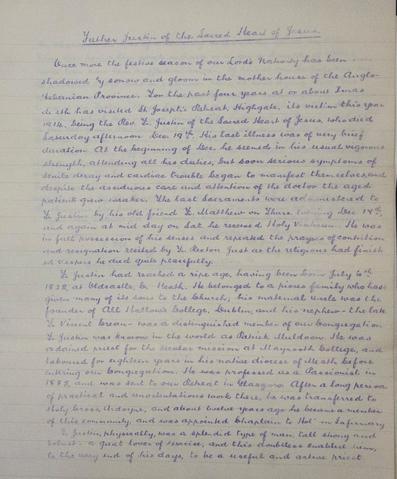 Father Justin of the Sacred Heart of Jesus
Once more the festive season of our Lord's Nativity has been
shadowed by sorrow and gloom in the mother house of the Anglo-
Hibernian Province. For the past four years at or about Xmas
death has visited St Joseph's Retreat, Highgate, its victim this year
1914, being the Rev. F. Justin of the Sacred Heart of Jesus, who died
Saturday afternoon Dec 19th. His last illness was of very brief
duration. At the beginning of Dec. he seemed in his usual vigorous
strength, attending all his duties, but soon serious symptoms of
senile decay and cardiac trouble began to manifest themselves, and
despite the assiduous care and attention of the doctor the aged
patient grew weaker. The last Sacraments were administered to
F. Justin by his old friend F. Matthew on Thurs. evening Dec 17th,
and again at mid day on Sat. he received Holy Viaticum. He was
in full possession of his senses and repeated the prayers of contrition
and resignation recited by F. Rector. Just as the religious had finish
ed Vespers he died quite peacefully.
F. Justin had reached a ripe age, having been born July 4th
1838, at Oldcastle, Co. Meath. He belonged to a pious family who has
given many of its sons to the Church, his maternal uncle was the
founder of All Hallows College, Dublin, and his nephew - the late
F. Vincent Grean - was a distinguished member of our Congregation
F. Justin was known in the world as Patrick Muldoon. He was
ordained priest for the secular mission at Maynooth College, and
laboured for eighteen years in his native diocese of Meath before
entering our Congregation. He was professed as a Passionist in
and was sent to our Retreat in Glasgow. After a long period
of practical and unostentatious work there, he was transferred to
Holy Cross, Ardoyne, and about twelve years ago he became a member
of this community, and was appointed Chaplain to Infirmary
F. Justin, physically, was a splendid type of man, tall strong and
robust: a great lover of exercise, and this doubtless enabled him,
to the very end of his days, to be a useful and active priest